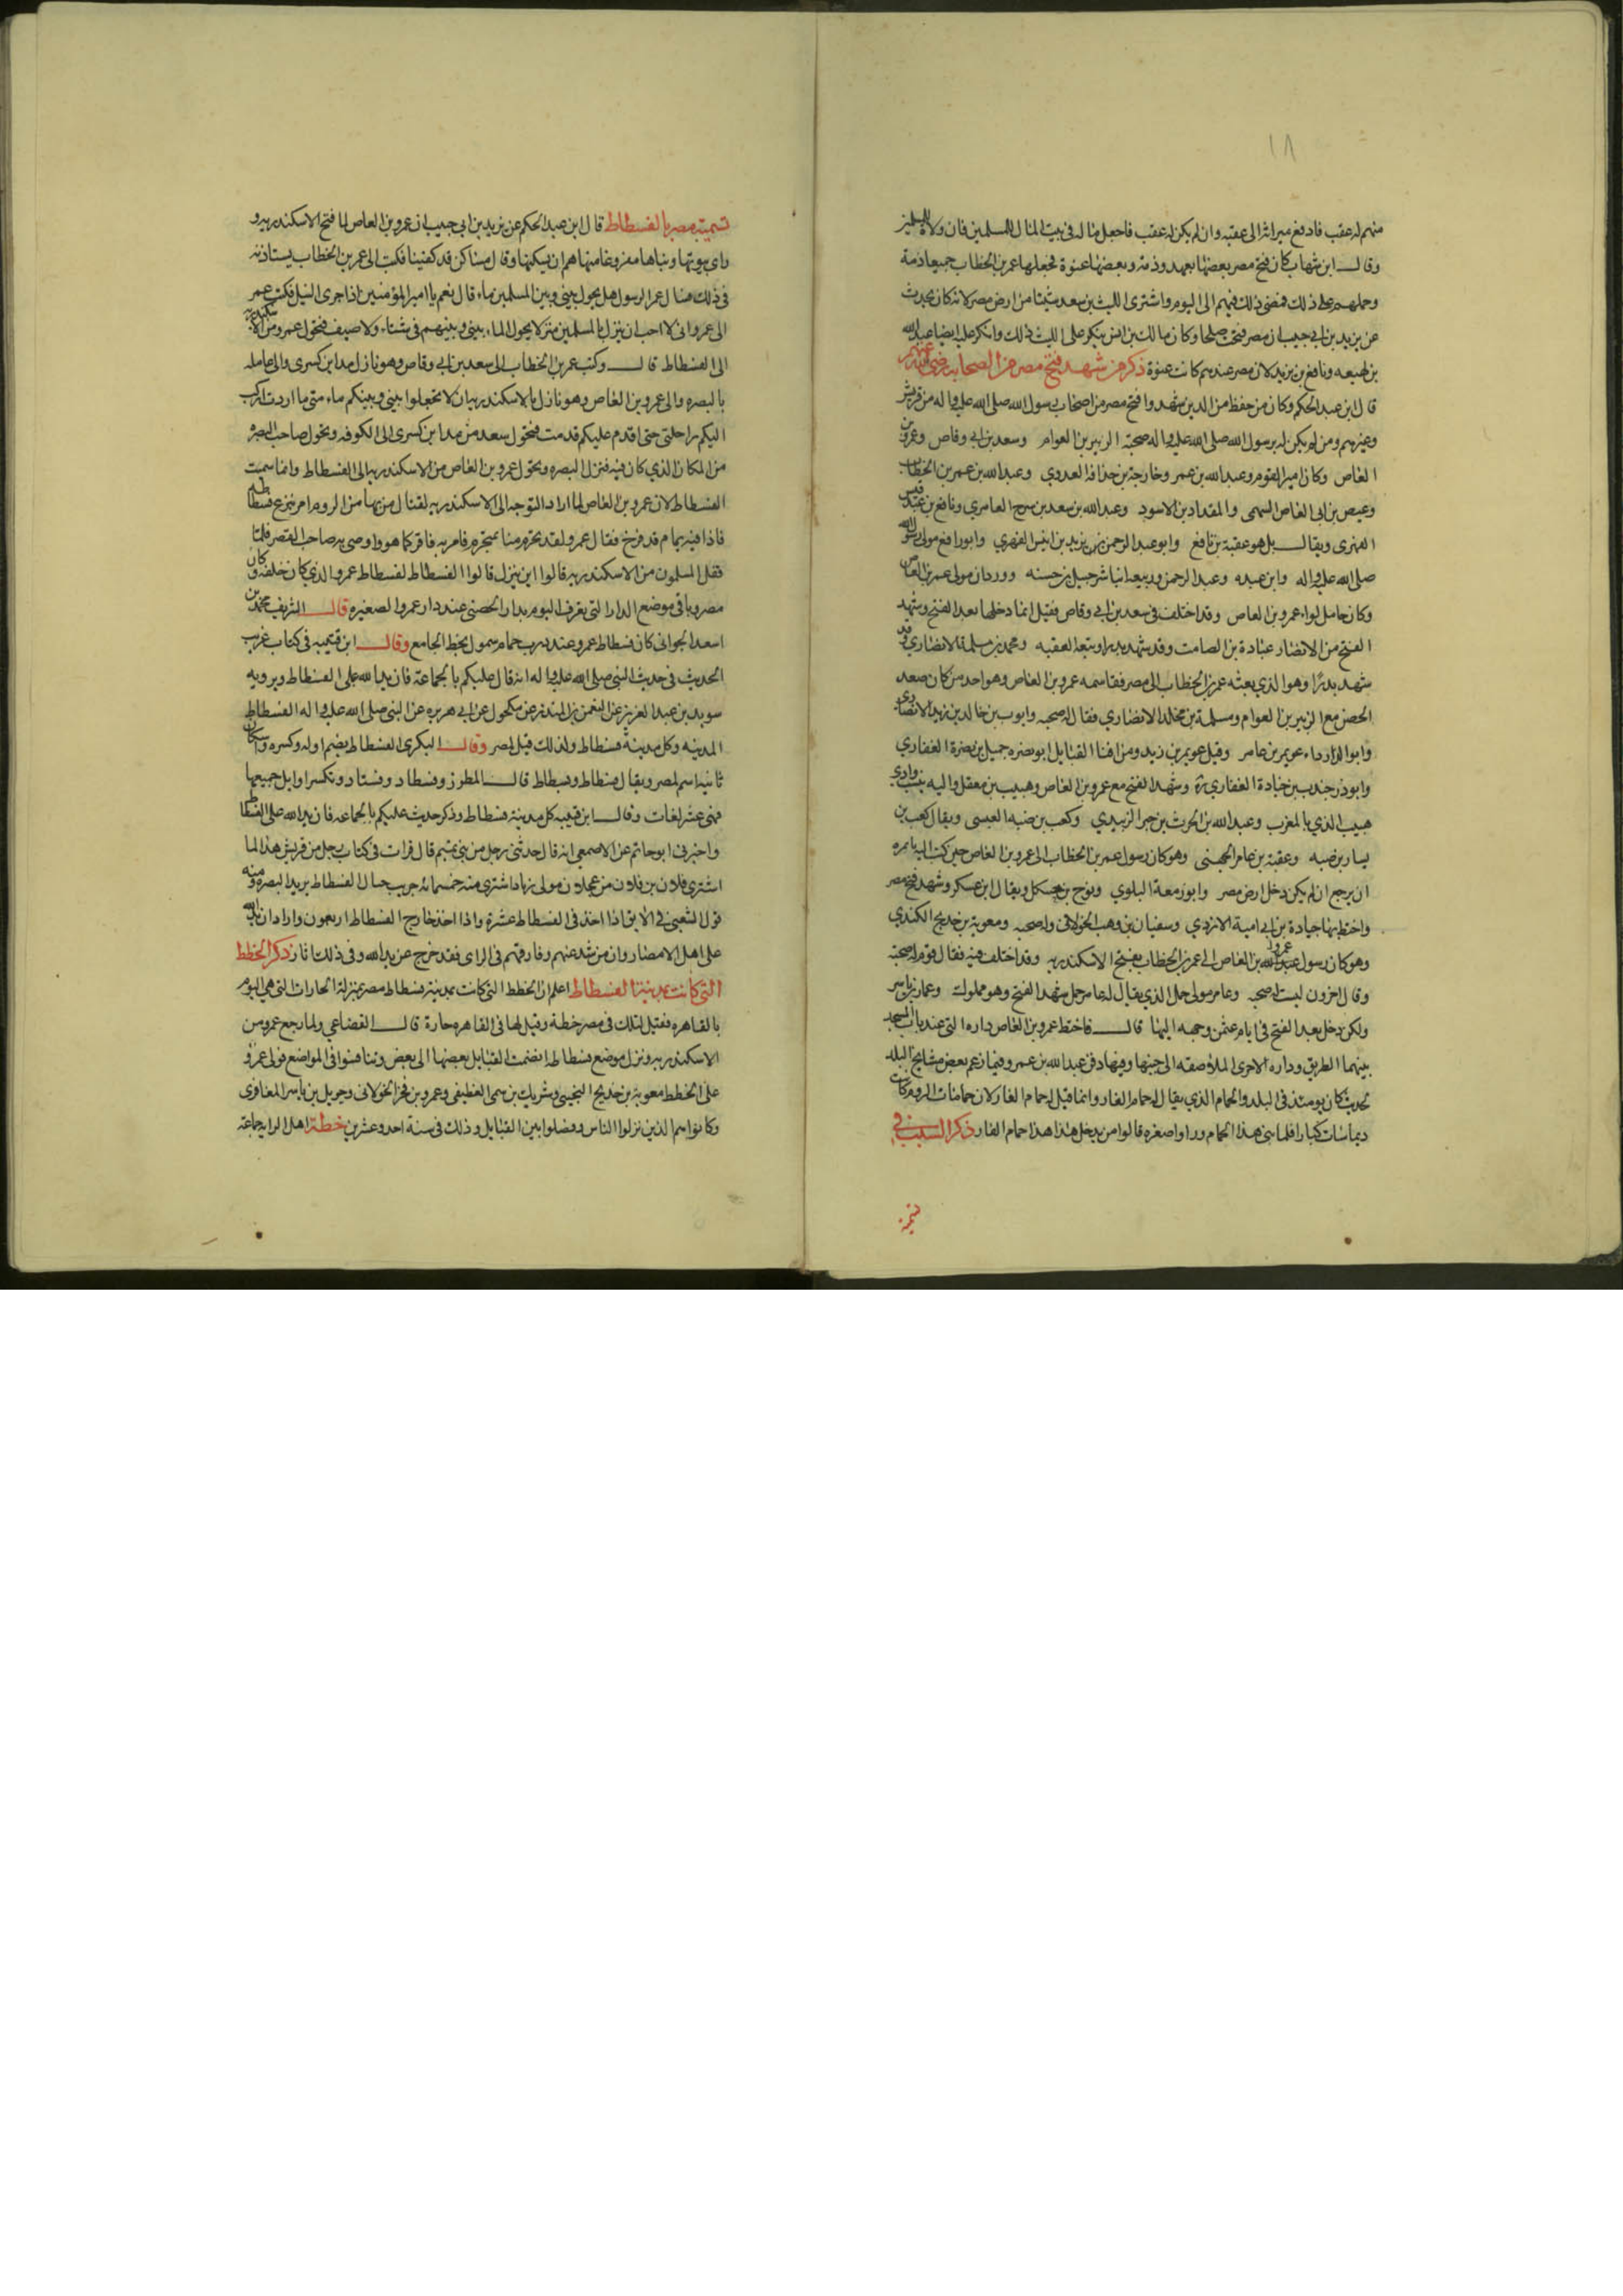 ١٨
منهم له عقب فادفع ميراثه الى عقبه وان لم يكن له عقب فاجعل ماله في بيت المال للمسلمين فان ولاه للمسلمين
وقال ابن شهاب كان فتح مصر بعضها بعهد وذمة وبعضها عنوة فجعلها عمر بن الخطاب جميعا ذمة
وحملهم على ذلك فمضى ذلك فيهم الى اليوم واشترى الليث بن سعد شيئا من ارض مصر لانه كان يحدث
عن يزيد بن ابي حبيب ان مصر فتحت صلحا وكان مالك بن انس ينكر على الليث ذلك وانكر عليه ايضا عبد الله
بن لهيعه ونافع بن يزيد لان مصر عندهم كانت عنوة ذكر من شهد فتح مصر من الصحابة رضي الله عنهم
قال ابن عبد الحكم وكان من حفظ من الذين شهدوا فتح مصر من اصحاب رسول الله صلى الله عليه واله من قريش
وغيرهم ومن لم يكن له برسول الله صلى الله عليه واله صحبة الزبير بن العوام وسعد بن ابي وقاص وعمرو بن
العاص وكان امير القوم وعبد الله بن عمر وخارجة بن حذافة العدوي وعبد الله بن عمر بن الخطاب
وقيس بن ابي العاص السهمي والمقداد بن الاسود وعبد الله بن سعد بن ابي سرح العامري ونافع بن عبد قيس
الفهري ويقال بل هو عقبة بن نافع وابو عبد الرحمن يزيد بن انيس الفهري وابو رافع مولى رسول الله
صلى الله عليه واله وابن عبده وعبد الرحمن وربيعه ابنا شرحبيل بن حسنه ووردان مولى عمرو بن العاص
وكان حامل لواء عمرو بن العاص وقد اختلف في سعد بن ابي وقاص فقيل انما دخلها بعد الفتح وشهد
الفتح من الانصار عبادة بن الصامت وقد شهد بدرا وبيعة العقبه ومحمد بن مسلمة الانصاري وقد
شهد بدرًا وهو الذي بعثه عمر بن الخطاب الى مصر فقاسم عمرو بن العاص وهو احد من كان صعد
الحصن مع الزبير بن العوام ومسلمة بن مخلد الانصاري فقال له صحبه وابو ايوب خالد بن زيد الانصاري
وابو الدرداء عويمر بن عامر وقيل عويمر بن زيد ومن افناء القبايل ابو بصره جميل بن بصرة الغفاري
وابو ذر جندب بن جنادة الغفاري وشهد الفتح مع عمرو بن العاص وهبيب بن معقل واليه ينسب وادي
هبيب الذي بالمغرب وعبد الله بن الحرث بن جزء الزبيدي وكعب بن ضبه العبسي ويقال كعب بن
يسار بن ضبه وعقبة بن عامر الجهني وهو كان رسول عمر بن الخطاب الى عمرو بن العاص حين كتب اليه يامره
ان يرجع ان لم يكن دخل ارض مصر وابو زمعة البلوي وبرح بن حسكل ويقال ابن عسكر وشهد فتح مصر
واختط بها جنادة بن ابي امية الازدي وسفيان بن وهب الخولاني وله صحبه ومعوية بن خديج الكندي
وهو كان رسول عمرو بن العاص الى عمر بن الخطاب بفتح الاسكندريه وقد اختلف فيه فقال قوم له صحبة
وقال اخرون ليست له صحبه وعامر مولى جمل الذي يقال له عامر جمل شهد الفتح وهو مملوك وعمار بن ياسر
ولكن دخل بعد الفتح في ايام عثمن وجهه اليها قال فاختط عمرو بن العاص داره التي عند باب المسجد
بينهما الطريق وداره الاخرى الملاصقه الى جنبها وفيها دفن عبد الله بن عمرو فيما زعم بعض مشايخ البلد
لحدث كان يومئذ في البلد والحمام الذي يقال له حمام الفار وانما قيل له حمام الفار لان حمامات الروم كانت
ديماسات كبارا فلما بنى هذا الحمام وراوا صغره قالوا من يدخل هذا هذا حمام الفار ذكر السبب في
تسمية
تسمية مصر بالفسطاط قال ابن عبد الحكم عن يزيد بن ابي حبيب ان عمرو بن العاص لما فتح الاسكندريه و
راى بيوتها وبناها مفروغا منها هم ان يسكنها وقال مساكن قد كفيناها فكتب الى عمر بن الخطاب يستاذنه
في ذلك فسال عمر الرسول هل يحول بيني وبين المسلمين ماء قال نعم يا امير المؤمنين اذا جرى النيل فكتب عمر
الى عمرو اني لا احب ان تنزل بالمسلمين منزلا يحول الماء بيني وبينهم في شتاء ولا صيف فتحول عمرو من الاسكندرية
الى الفسطاط قال وكتب عمر بن الخطاب الى سعد بن ابي وقاص وهو نازل مداين كسرى والى عامله
بالبصره والى عمرو بن العاص وهو نازل بالاسكندريه ان لا تجعلوا بيني وبينكم ماء متى ما اردت اركب
اليكم راحلتي حتى اقدم عليكم قدمت فتحول سعد من مداين كسرى الى الكوفه وتحول صاحب البصره
من المكان الذي كان فيه فنزل البصره وتحول عمرو بن العاص من الاسكندريه الى الفسطاط وانما سميت
الفسطاط لان عمرو بن العاص لما اراد التوجه الى الاسكندريه لقتال من بها من الروم امر بنزع فسطاطه
فاذا فيه يمام قد فرخ فقال عمرو لقد تحرم منا بمتحرم فامر به فاقر كما هو واوصى به صاحب القصر فلما
قفل المسلمون من الاسكندريه قالوا اين ننزل قالوا الفسطاط لفسطاط عمرو الذي كان خلفه وكان
مضروبا في موضع الدار التي تعرف اليوم بدار الحصى عند دار عمرو الصغيره قال الشريف محمد بن
اسعد الجواني كان فسطاط عمرو عند درب حمام شمول بخط الجامع وقال ابن قتيبه في كتاب غريب
الحديث في حديث النبي صلى الله عليه واله انه قال عليكم بالجماعة فان يد الله على الفسطاط ويرويه
سويد بن عبد العزيز عن النعمن بن المنذر عن مكحول عن ابي هريره عن النبي صلى الله عليه واله الفسطاط
المدينه وكل مدينة فسطاط ولذلك قيل لمصر وقال البكري الفسطاط بضم اوله وكسره واسكان
ثانيه اسم لمصر ويقال فسطاط وفسطاط قال المطرز وفسطاد وفستاد وتكسر اوايل جميعها
فهي عشر لغات وقال ابن قتيبه كل مدينة فسطاط وذكر حديث عليكم بالجماعه فان يد الله على الفسطاط
واخبرني ابو حاتم عن الاصمعي انه قال حدثني رجل من بني تميم قال قرات في كتاب رجل من قريش هذا ما
اشترى فلان بن فلان من عجلان مولى زياد اشترى منه خمسمائة جريب حيال الفسطاط يريد البصره ومنه
قول الشعبي في الابق اذا اخذ في الفسطاط عشرة واذا اخذ خارج الفسطاط اربعون واراد ان يد الله
على اهل الامصار وان من شذ عنهم وفارقهم في الراى فقد خرج عن يد الله وفي ذلك اثار ذكر الخطط
التي كانت بمدينة الفسطاط اعلم ان الخطط التي كانت بمدينة فسطاط مصر بمنزلة الحارات التي هي اليوم
بالقاهره فقيل لتلك في مصر خطة وقيل لها في القاهره حارة قال القضاعي ولما رجع عمرو من
الاسكندريه ونزل موضع فسطاط انضمت القبايل بعضها الى بعض وتنافسوا في المواضع فولى عمرو
على الخطط معوية بن خديج التجيبي وشريك بن سمي الغطيفي وعمرو بن قحزم الخولاني وجويل بن ناشر المعافري
وكانوا هم الذين نزلوا الناس وفصلوا بين القبايل وذلك في سنة احد وعشرين خطة اهل الراية جماعة